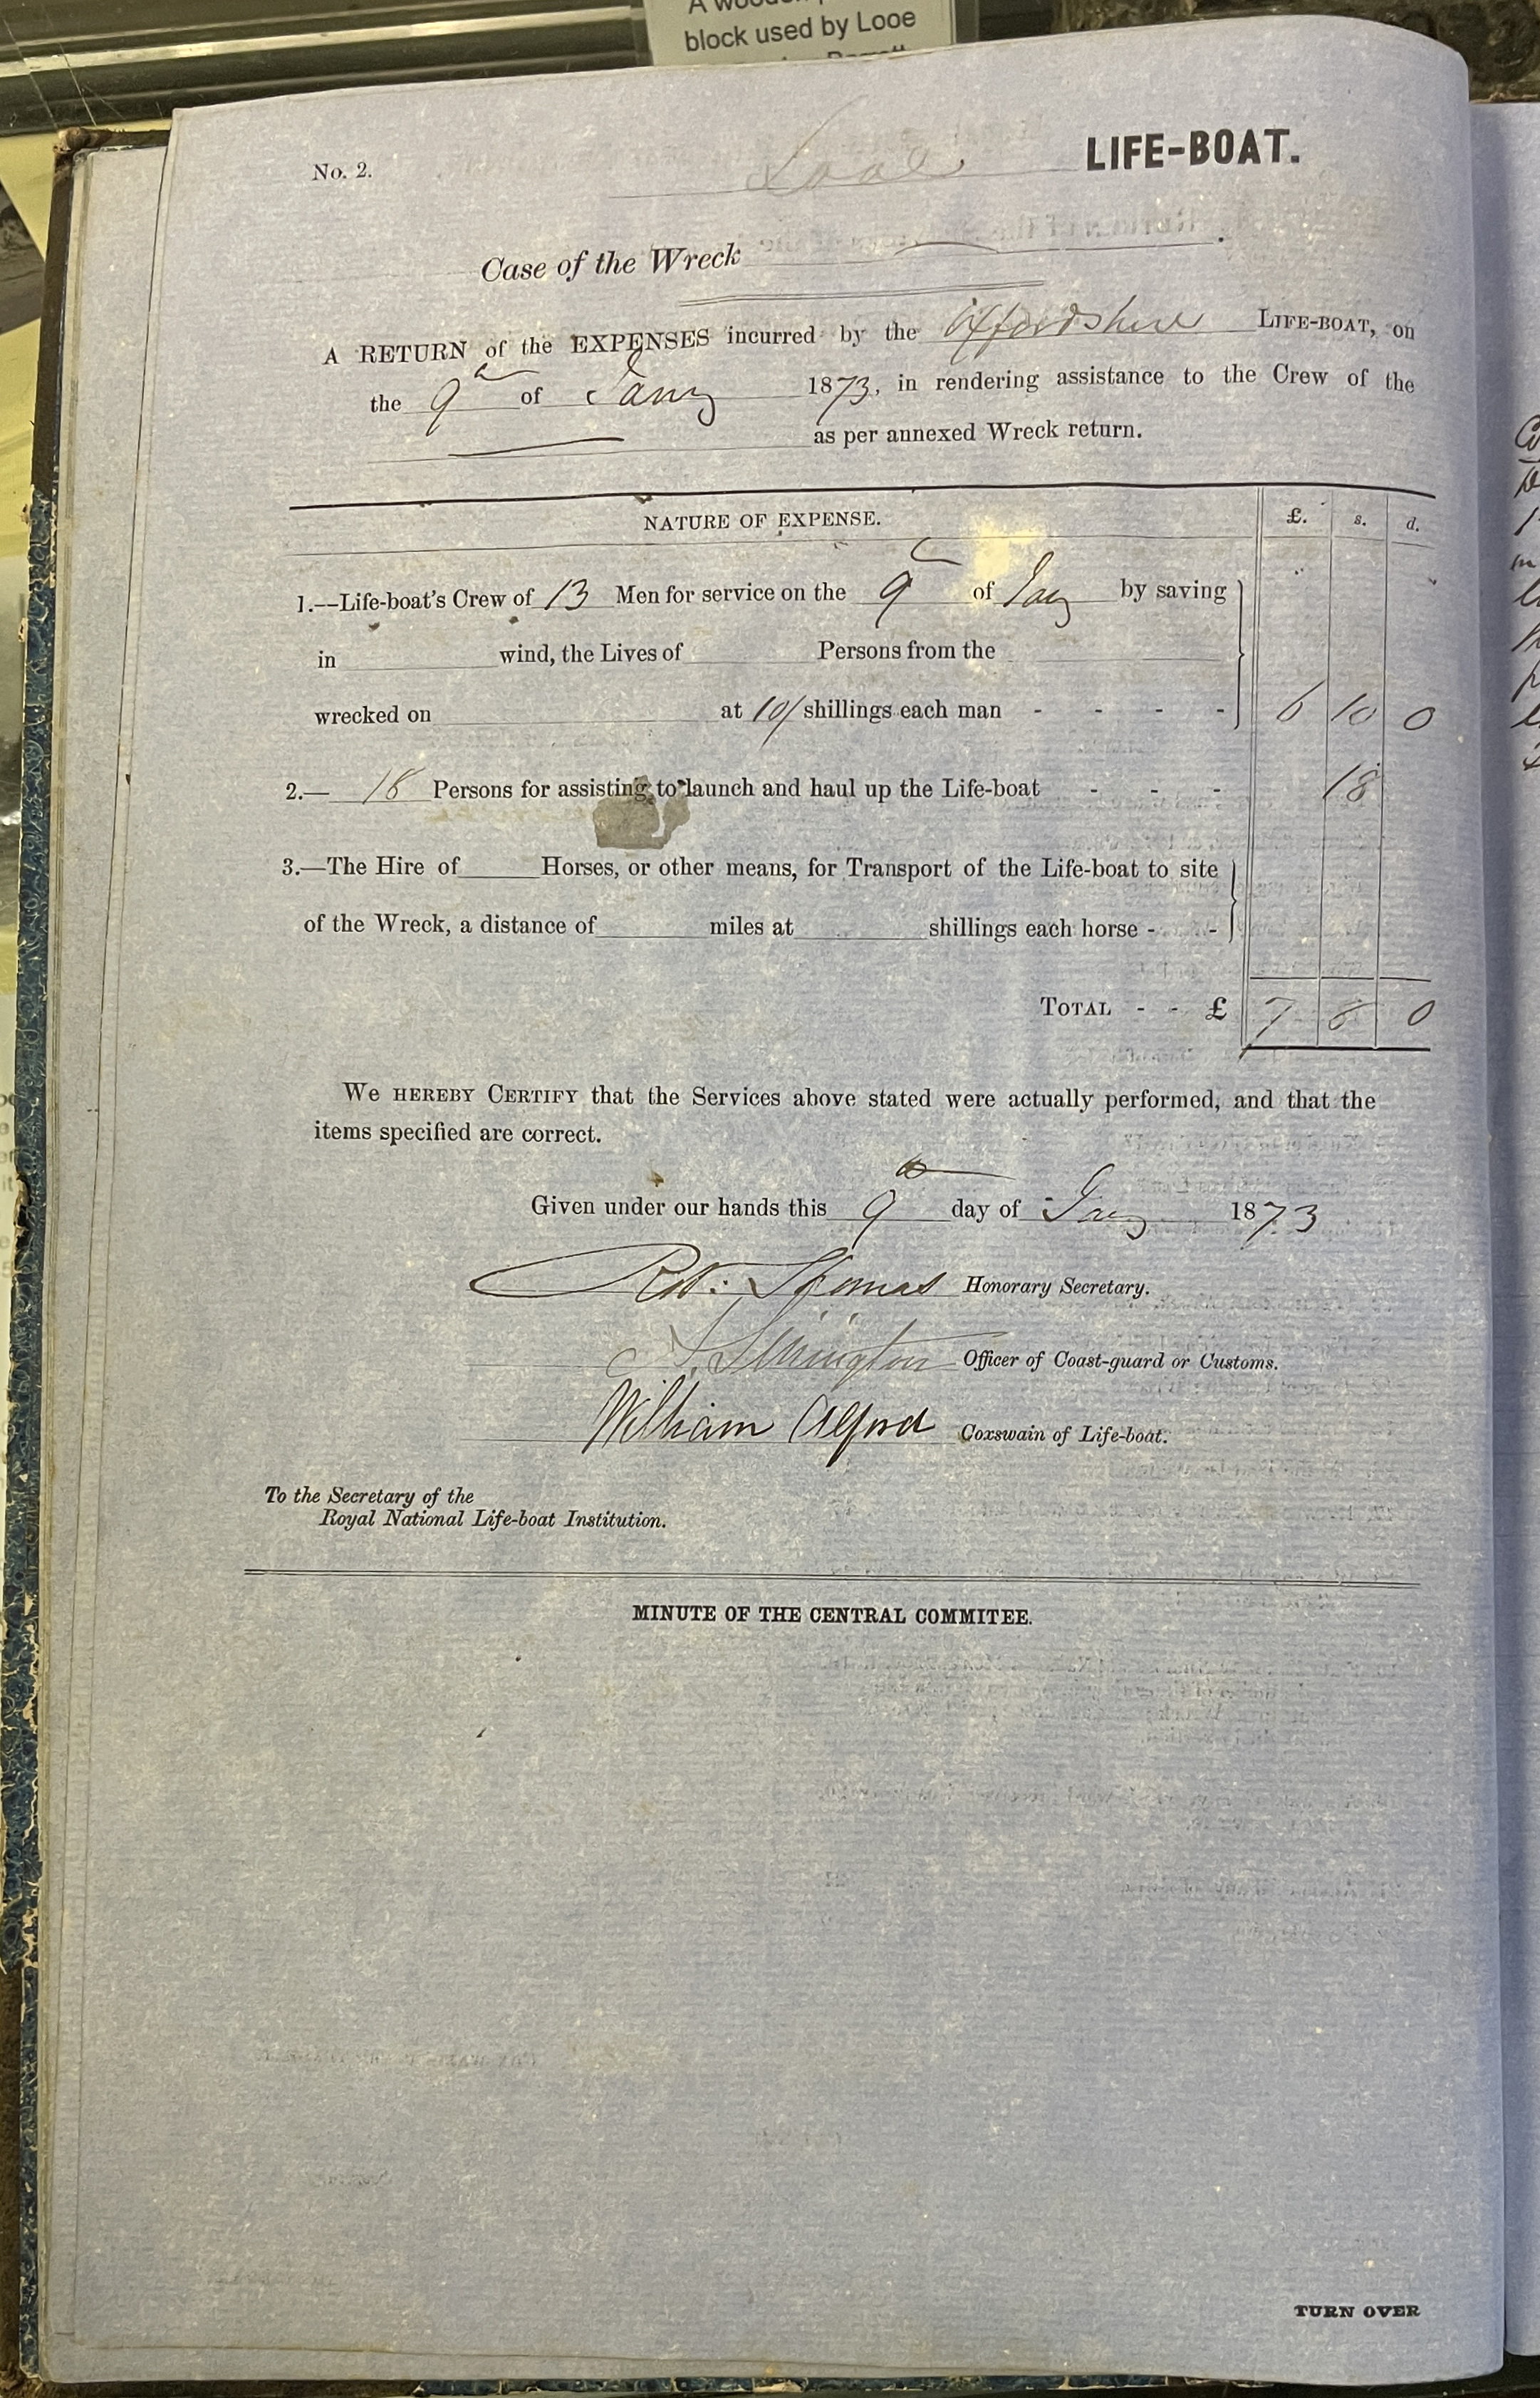 A wooden
block used by Looe
No. 2.
Looe LIFE-BOAT.
Case of the Wreck
A RETURN of the EXPENSES incurred by the Oxfordshire LIFE-BOAT, on
the 9th of Jany 1873, in rendering assistance to the Crew of the
as per annexed Wreck return.
NATURE OF EXPENSE. £. s. d.
1.—Life-boat's Crew of 13 Men for service on the 9th of Jany by saving
in wind, the Lives of Persons from the
wrecked on at 10/ shillings each man - - - - 6 10 0
2.— 18 Persons for assisting to launch and haul up the Life-boat - - - 18
3.—The Hire of Horses, or other means, for Transport of the Life-boat to site
of the Wreck, a distance of miles at shillings each horse - -
TOTAL - - £ 7 8 0
WE HEREBY CERTIFY that the Services above stated were actually performed, and that the
items specified are correct.
Given under our hands this 9th day of Jany 1873
Robt: Thomas Honorary Secretary.
Officer of Coast-guard or Customs.
William Alford Coxswain of Life-boat.
To the Secretary of the
Royal National Life-boat Institution.
MINUTE OF THE CENTRAL COMMITEE.
TURN OVER